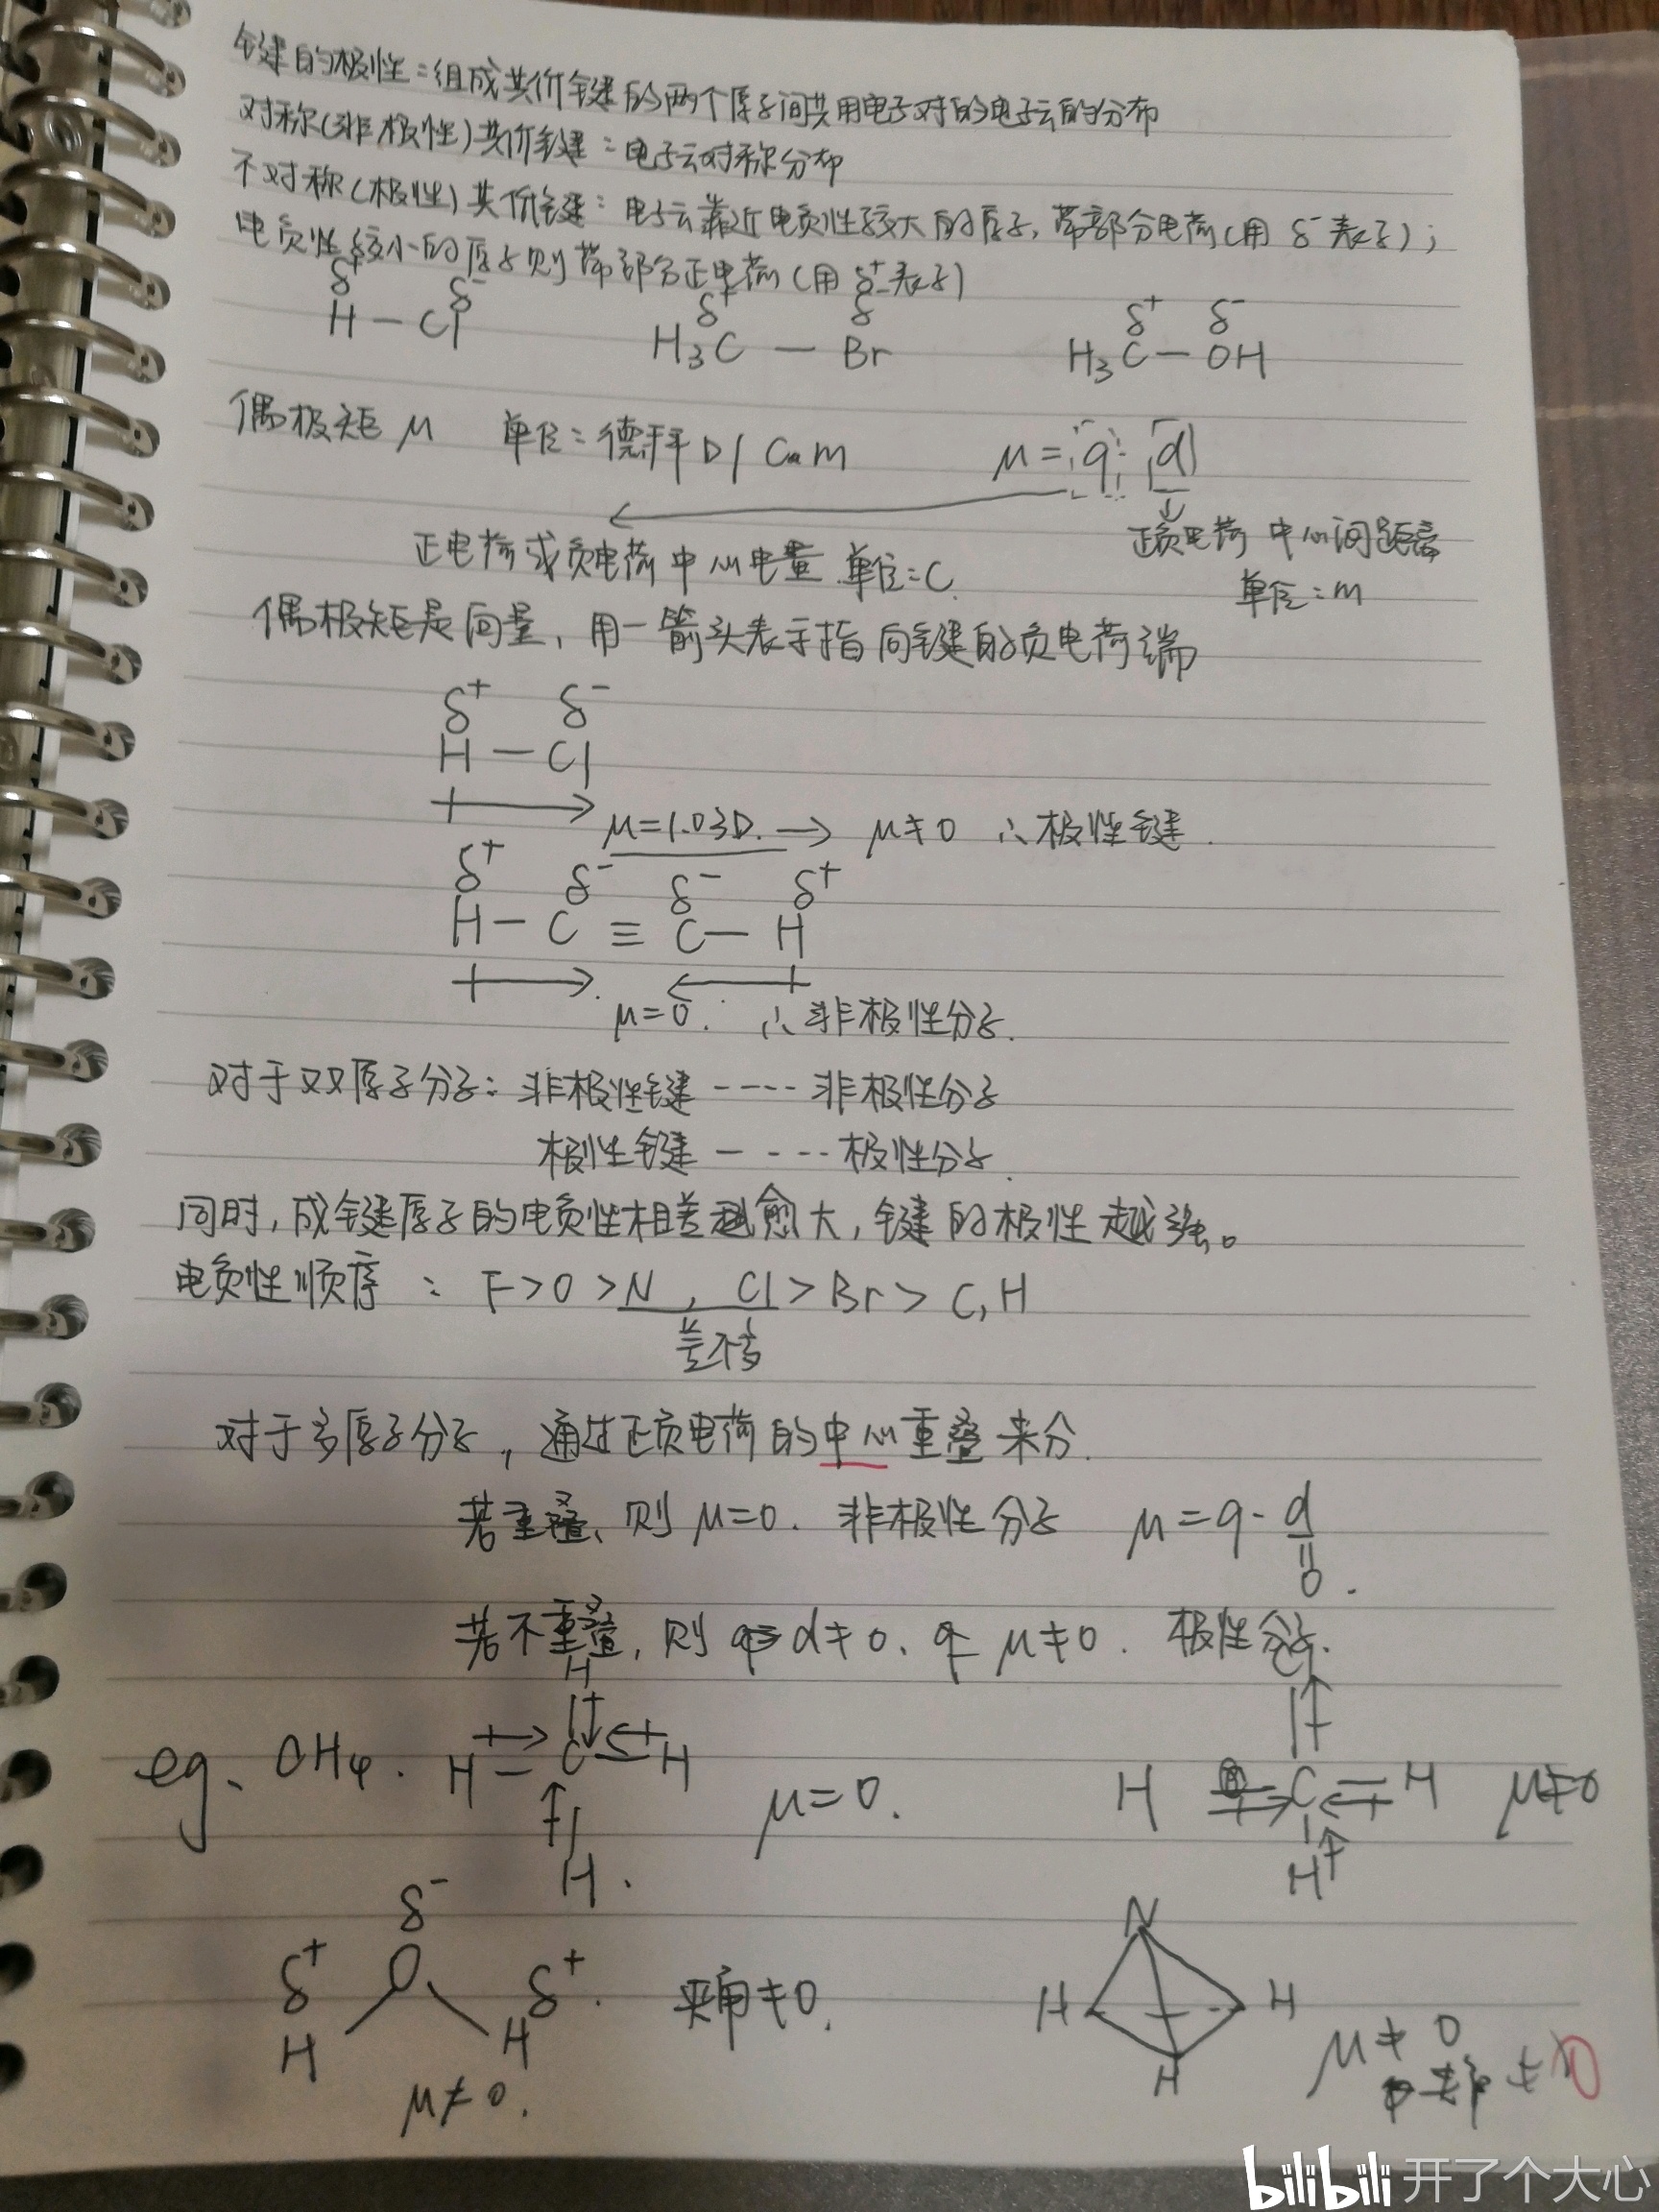 键的极性:组成共价键的两个原子间共用电子对的电子云的分布
对称(非极性)共价键:电子云对称分布
不对称(极性)共价键:电子云靠近电负性较大的原子,带部分电荷(用 δ⁻表示);
电负性较小的原子则带部分正电荷(用 δ⁺表示)
δ⁺ δ⁻ δ⁺ δ δ⁺ δ⁻
H — Cl H₃C — Br H₃C — OH
偶极矩 μ 单位:德拜 D / C·m μ = q · d
正电荷或负电荷中心电量 单位:C
正负电荷中心间距离
单位:m
偶极矩是向量,用一箭头表示指向键的负电荷端
δ⁺ δ⁻
H — Cl
μ=1.03D. → μ≠0 ∴极性键.
δ⁺ δ⁻ δ⁻ δ⁺
H — C ≡ C — H
μ=0. ∴非极性分子.
对于双原子分子:非极性键 ---- 非极性分子
极性键 ---- 极性分子.
同时,成键原子的电负性相差愈大,键的极性越强。
电负性顺序 : F>O>N , Cl>Br> C,H
差不多
对于多原子分子,通过正负电荷的中心重叠来分.
若重叠,则 μ=0. 非极性分子 μ=q·d
=0.
若不重叠,则 d≠0. μ≠0. 极性分子.
eg. CH₄.
H
H — C — H
H.
μ=0.
Cl
H C H μ≠0
H
δ⁻
δ⁺ O δ⁺.
H H
夹角≠0.
μ≠0.
N
H H
H
μ≠0
bilibili 开了个大心